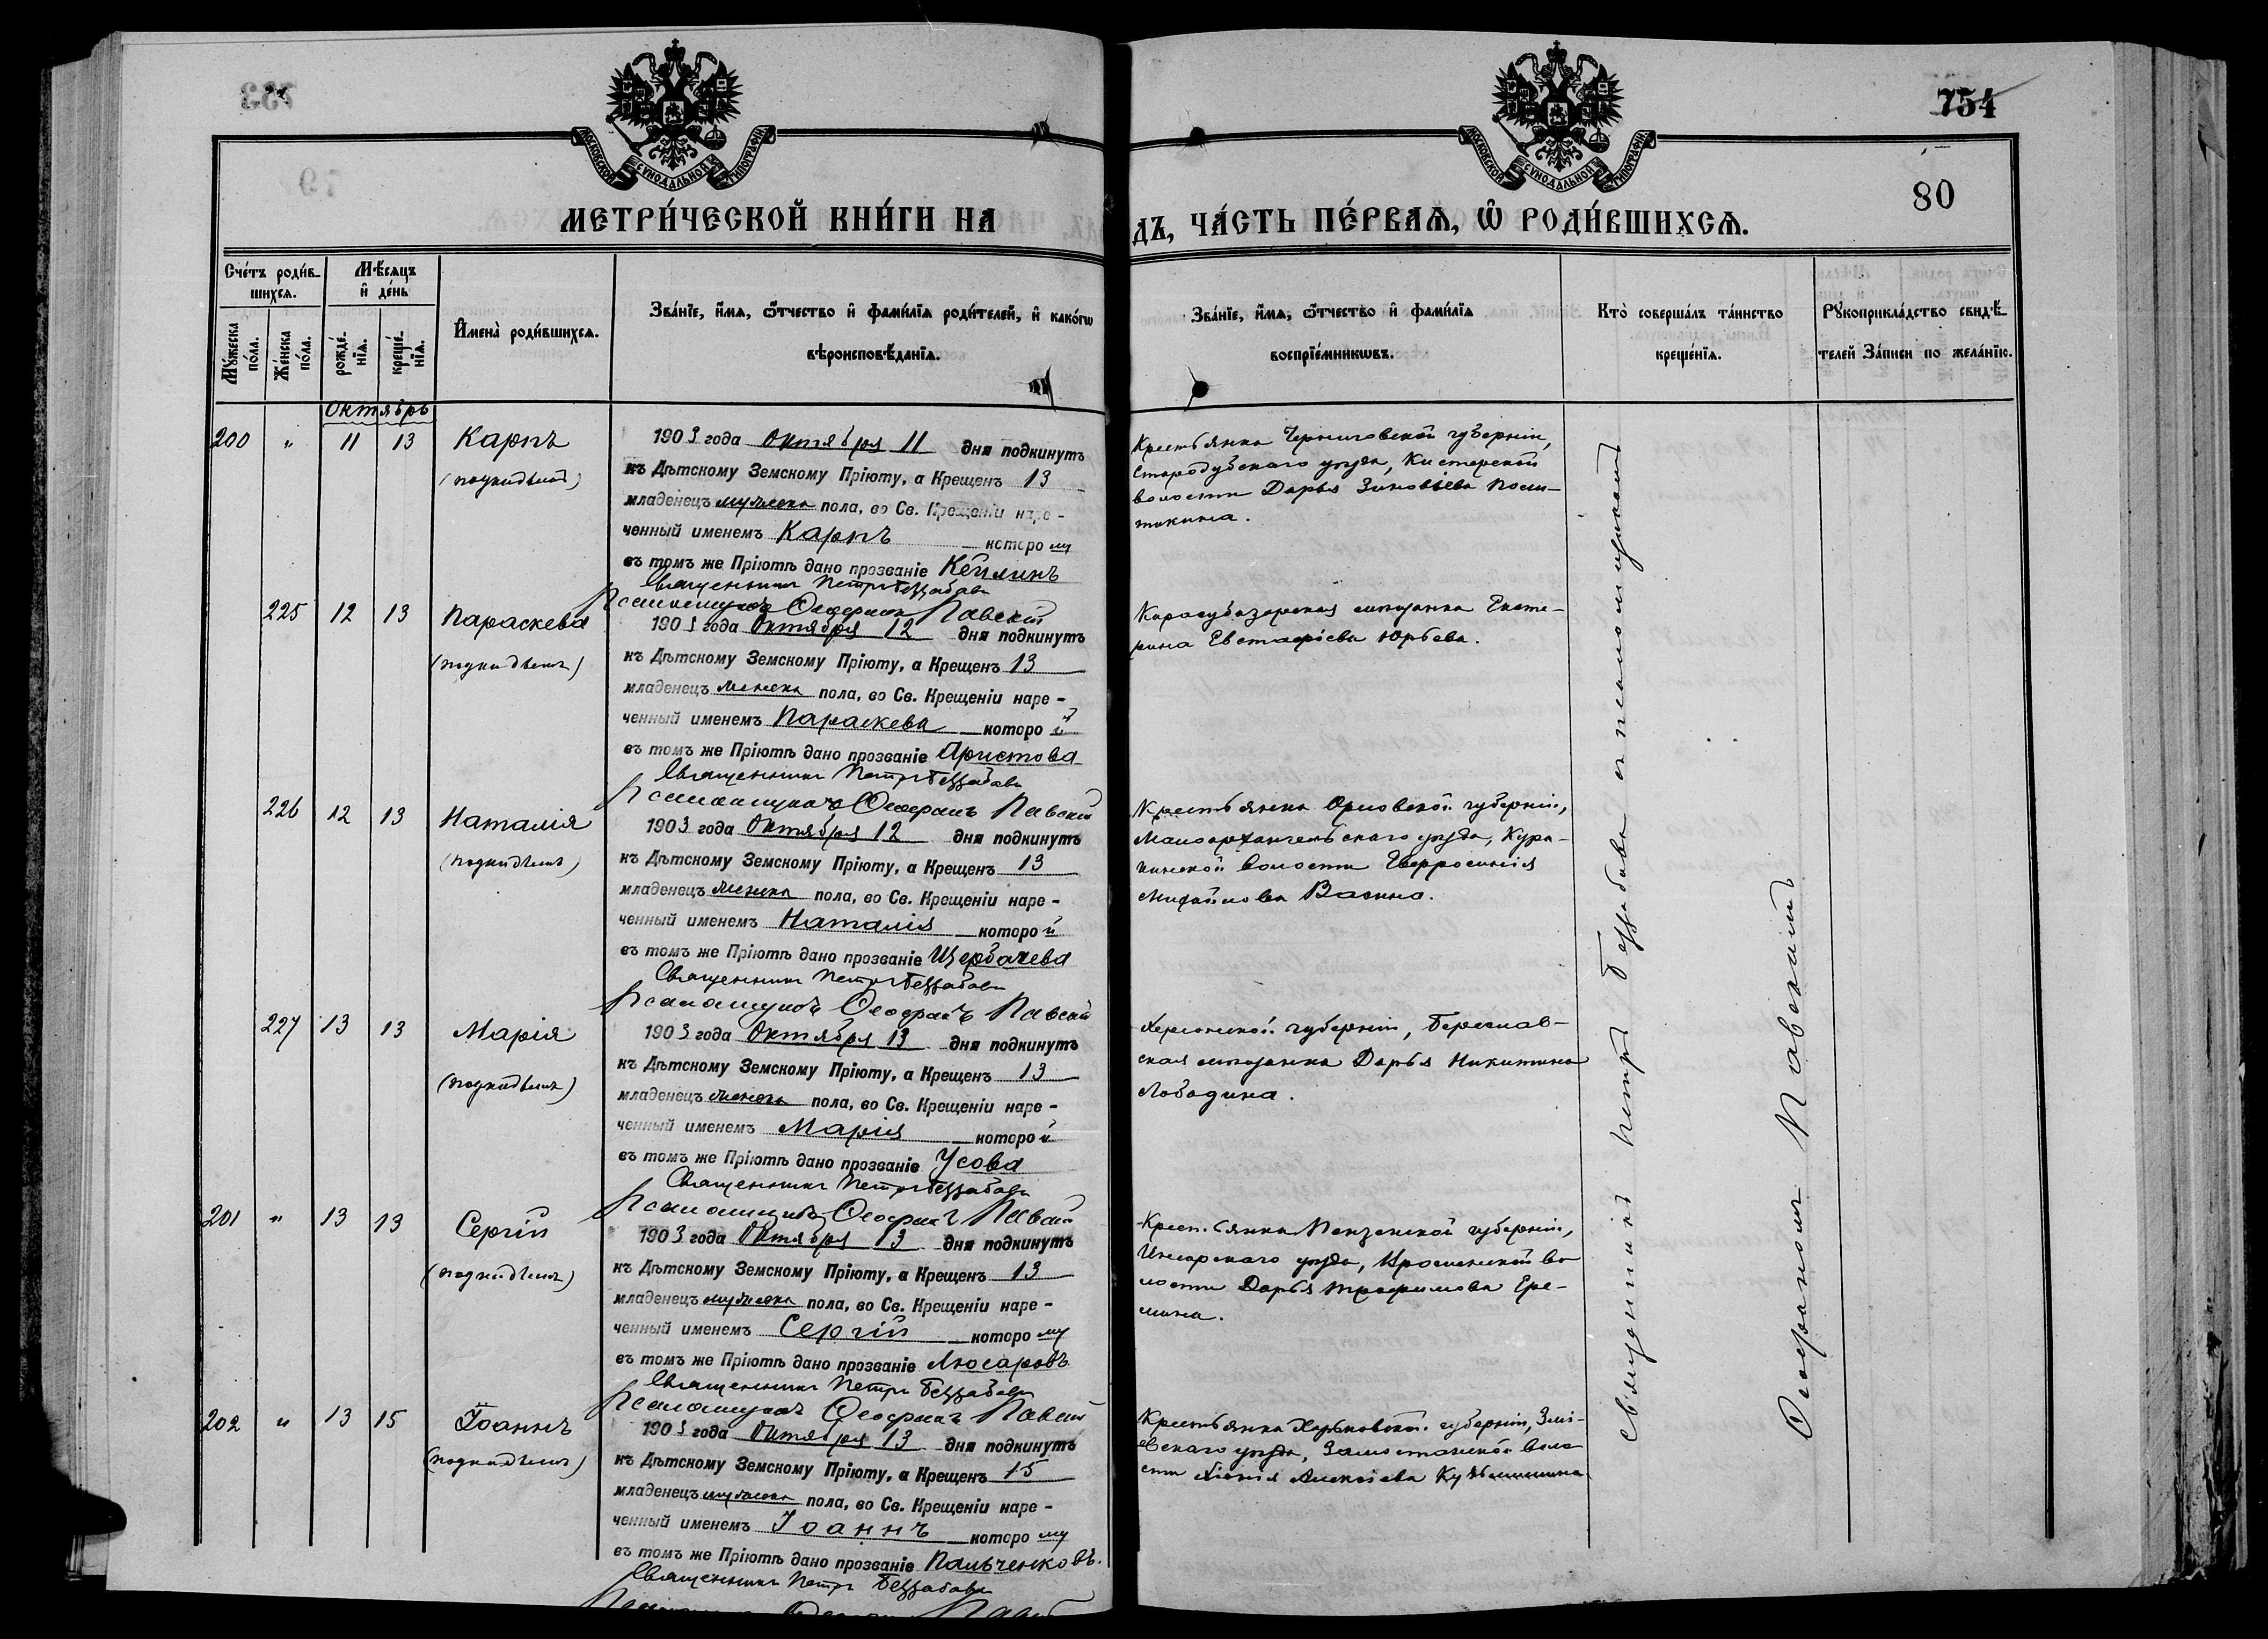 754
80
МОСКОВСКОЙ СѴНОДАЛЬНОЙ ТИПОГРАФІИ
МОСКОВСКОЙ СѴНОДАЛЬНОЙ ТИПОГРАФІИ
МЕТРИ́ЧЕСКОЙ КНИ́ГИ НА
ДЪ, ЧА́СТЬ ПЕ́РВАѦ, Ѡ҆ РОДИ́ВШИХСѦ.
Сче́тъ роди́в-
шихся.
Мꙋ́жеска по́ла.
Же́нска по́ла.
Мѣ́сяцъ
и҆ де́нь
рожде́-
нїя.
креще́-
нїя.
И҆мена̀ роди́вшихся.
Зва́нїе, и҆́мя, ѻ҆́тчество и҆ фами́лїя роди́телей, и҆ како́гѡ
вѣроисповѣ́данїя.
Зва́нїе, и҆́мя, ѻ҆́тчество и҆ фами́лїя
воспрїе́мникѡвъ.
Кто̀ соверша́лъ та́инство
креще́нїя.
Рꙋкоприкла́дство свидѣ́-
телей за́писи по жела́нїю.
Октябрь
200 " 11 13 Карпъ
(подкидышъ)
1903 года Октября 11 дня подкинутъ
къ Дѣтскому Земскому Пріюту, а Крещенъ 13
младенецъ мужеска пола, во Св. Крещеніи наре-
ченный именемъ Карпъ которому
въ томъ же Пріютѣ дано прозваніе
Священникъ Петръ Беззабава
Псаломщикъ Ѳеофанъ Павскій
Крестьянка Черниговской губерніи,
Стародубскаго уѣзда, Кистерской
волости Дарья Зиновьева
225 12 13 Параскева
(подкидышъ)
1903 года Октября 12 дня подкинутъ
къ Дѣтскому Земскому Пріюту, а Крещенъ 13
младенецъ женска пола, во Св. Крещеніи наре-
ченный именемъ Параскева которой
въ томъ же Пріютѣ дано прозваніе Аристова
Священникъ Петръ Беззабава
Псаломщикъ Ѳеофанъ Павскій
Карасубазарская мѣщанка Екате-
рина Евстафіева Юрьева.
226 12 13 Наталія
(подкидышъ)
1903 года Октября 12 дня подкинутъ
къ Дѣтскому Земскому Пріюту, а Крещенъ 13
младенецъ женска пола, во Св. Крещеніи наре-
ченный именемъ Наталія которой
въ томъ же Пріютѣ дано прозваніе Щербачева
Священникъ Петръ Беззабава
Псаломщикъ Ѳеофанъ Павскій
Крестьянка Орловской губерніи,
Малоархангельскаго уѣзда, Кура-
кинской волости Евфросинія
Михайлова Васина.
227 13 13 Марія
(подкидышъ)
1903 года Октября 13 дня подкинутъ
къ Дѣтскому Земскому Пріюту, а Крещенъ 13
младенецъ женска пола, во Св. Крещеніи наре-
ченный именемъ Марія которой
въ томъ же Пріютѣ дано прозваніе Усова
Священникъ Петръ Беззабава
Псаломщикъ Ѳеофанъ Павскій
Херсонской губерніи, Берислав-
ская мѣщанка Дарья Никитина
Лободина.
201 " 13 13 Сергій
(подкидышъ)
1903 года Октября 13 дня подкинутъ
къ Дѣтскому Земскому Пріюту, а Крещенъ 13
младенецъ мужеска пола, во Св. Крещеніи наре-
ченный именемъ Сергій которому
въ томъ же Пріютѣ дано прозваніе Люсаровъ
Священникъ Петръ Беззабава
Псаломщикъ Ѳеофанъ Павскій
Крестьянка Пензенской губерніи,
Инсарскаго уѣзда, во
лости Дарья Трофимова Ере-
мина.
202 " 13 15 Іоаннъ
(подкидышъ)
1903 года Октября 13 дня подкинутъ
къ Дѣтскому Земскому Пріюту, а Крещенъ 15
младенецъ мужеска пола, во Св. Крещеніи наре-
ченный именемъ Іоаннъ которому
въ томъ же Пріютѣ дано прозваніе Пальченковъ.
Священникъ Петръ Беззабава
Крестьянка Харьковской губерніи, Змі-
евскаго уѣзда, воло
сти Алексіева
Священникъ Петръ Беззабава съ псаломщикомъ
Ѳеофаномъ Павскимъ